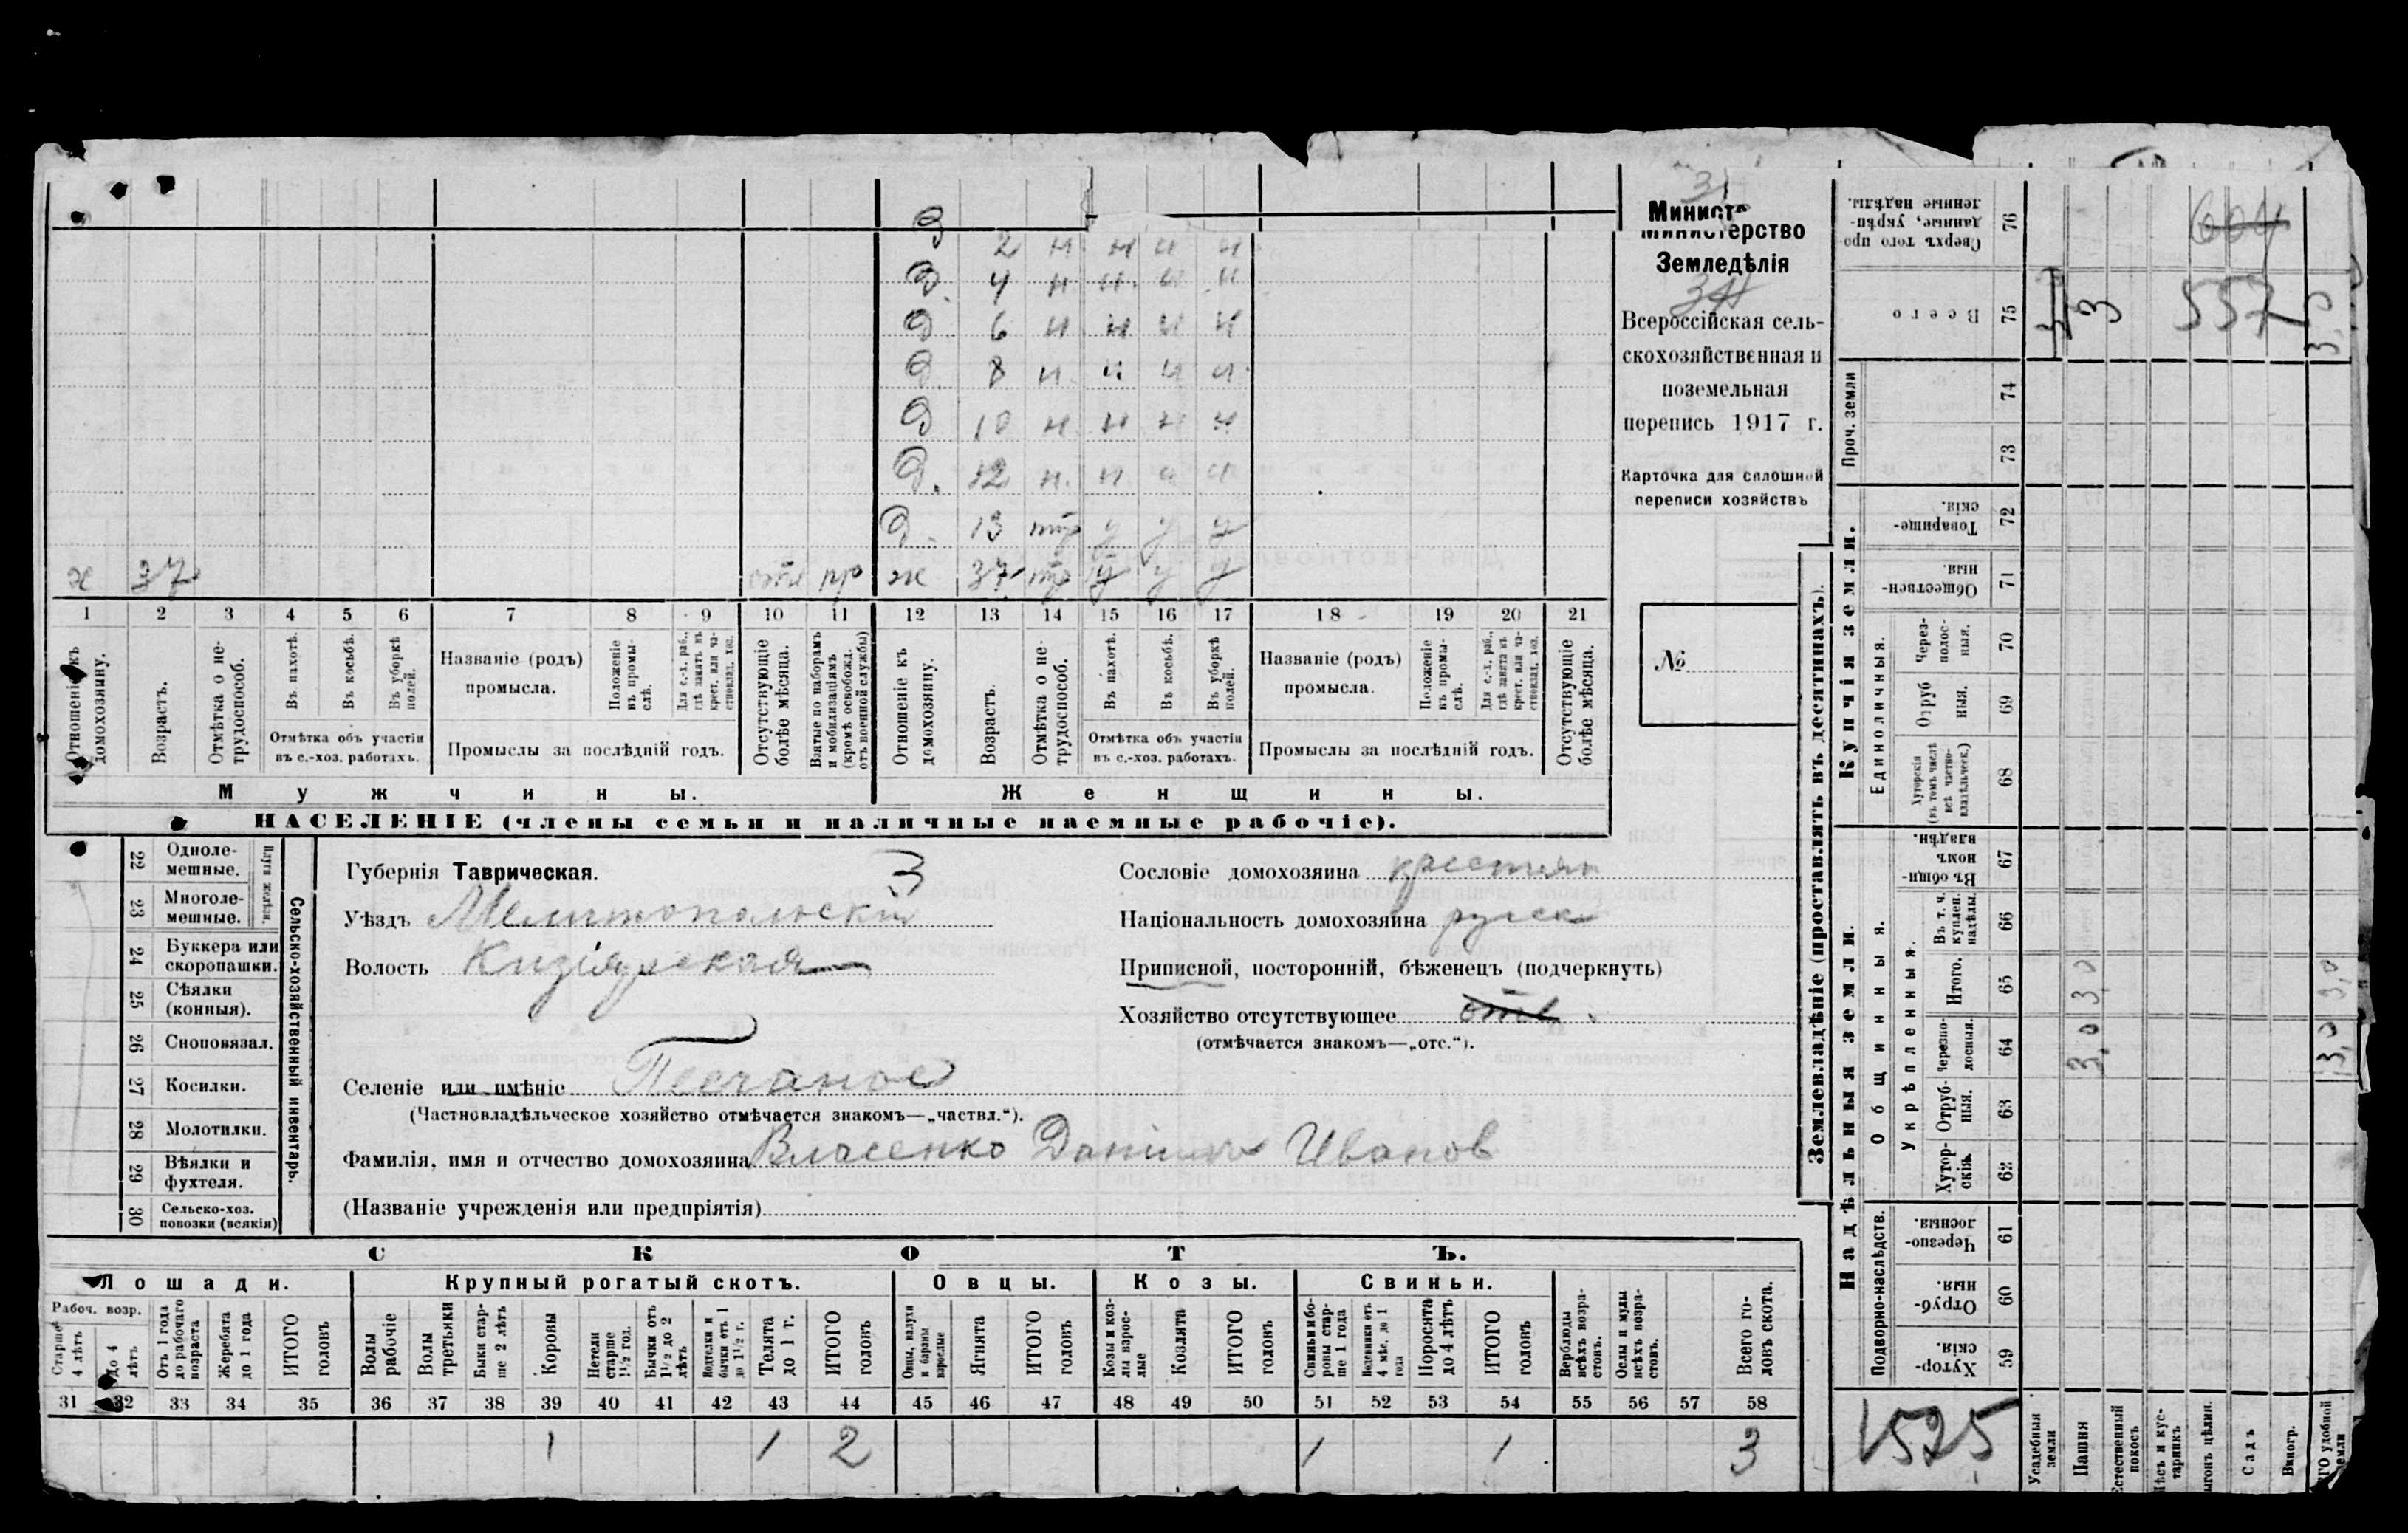 Д 2 н н н н
Д. 4 н н н н
Д 6 н н н н
Д 8 н н н н
Д 10 н н н н
Д. 12 н. н н н
Д. 13 тр у у у
х 37 отс пр ж 37 тр у у у
1 2 3 4 5 6 7 8 9 10 11 12 13 14 15 16 17 18 19 20 21
Отношеніе къ домохозяину.
Возрастъ.
Отмѣтка о нетрудоспособ.
Въ пахотѣ.
Въ косьбѣ.
Въ уборкѣ полей.
Отмѣтка объ участіи
въ с.-хоз. работахъ.
Названіе (родъ)
промысла.
Положеніе въ промыслѣ.
Для с.-х. раб., гдѣ занятъ въ крест. или частновлад. хоз.
Промыслы за послѣдній годъ.
Отсутствующіе болѣе мѣсяца.
Взятые по наборамъ и мобилизаціямъ (кромѣ освобожд. отъ военной службы)
Отношеніе къ домохозяину.
Возрастъ.
Отмѣтка о нетрудоспособ.
Въ пахотѣ.
Въ косьбѣ.
Въ уборкѣ полей.
Отмѣтка объ участіи
въ с.-хоз. работахъ.
Названіе (родъ)
промысла.
Положеніе въ промыслѣ.
Для с.-х. раб., гдѣ занята въ крест. или частновлад. хоз.
Промыслы за послѣдній годъ.
Отсутствующіе болѣе мѣсяца.
Мужчины.
Женщины.
НАСЕЛЕНІЕ (члены семьи и наличные наемные рабочіе).
Министерство
Земледѣлія
Всероссійская сель-
скохозяйственная и
поземельная
перепись 1917 г.
Карточка для сплошной
переписи хозяйствъ
№
22 Одноле-
мешные.
23 Многоле-
мешные.
Плуги желѣзн.
24 Буккера или
скоропашки.
25 Сѣялки
(конныя).
26 Сноповязал.
27 Косилки.
28 Молотилки.
29 Вѣялки и
фухтеля.
30 Сельско-хоз.
повозки (всякія)
Сельско-хозяйственный инвентарь.
Губернія Таврическая. 3
Уѣздъ Мелитопольскій
Волость Кизіярская
Селеніе или имѣніе Песчаное
(Частновладѣльческое хозяйство отмѣчается знакомъ—„частвл.“).
Фамилія, имя и отчество домохозяина Власенко Данило Иванов
(Названіе учрежденія или предпріятія)
Сословіе домохозяина крестьян
Національность домохозяина русск
Приписной, посторонній, бѣженецъ (подчеркнуть)
Хозяйство отсутствующее отс.
(отмѣчается знакомъ—„отс.“).
СКОТЪ.
Лошади.
Крупный рогатый скотъ.
Овцы.
Козы.
Свиньи.
Рабоч. возр.
Старше 4 лѣтъ
до 4 лѣтъ
Отъ 1 года до рабочаго возраста
Жеребята до 1 года
ИТОГО головъ
Волы рабочіе
Волы третьяки
Быки старше 2 лѣтъ
Коровы
Нетели старше 1½ год.
Бычки отъ 1½ до 2 лѣтъ
Подтелки и бычки отъ 1 до 1½ г.
Телята до 1 г.
ИТОГО головъ
Овцы, валухи и бараны взрослые
Ягнята
ИТОГО головъ
Козы и козлы взрослые
Козлята
ИТОГО головъ
Свиньи и боровы старше 1 года
Подсвинки отъ 4 мѣс. до 1 года
Поросята до 4 лѣтъ
ИТОГО головъ
Верблюды всѣхъ возрастовъ.
Ослы и мулы всѣхъ возрастовъ.
Всего головъ скота.
31 32 33 34 35 36 37 38 39 40 41 42 43 44 45 46 47 48 49 50 51 52 53 54 55 56 57 58
1 1 2 1 1 3
Землевладѣніе (проставлять въ десятинахъ).
Надѣльныя земли.
Купчія земли.
Проч. земли
Подворно-наслѣдств.
Общинныя.
Укрѣпленныя.
Единоличныя.
Сверхъ того проданные, укрѣпленные надѣлы. 76
Всего 75
74
73
Товарищескія. 72
Общественныя. 71
Черезполосныя. 70
Отрубныя. 69
Хуторскія (въ томъ числѣ всѣ частновладѣльческ.) 68
Въ общинномъ владѣн. 67
Въ т. ч. куплен. надѣлы. 66
Итого. 65
Черезполосныя. 64
Отрубныя. 63
Хуторскія. 62
Черезполосныя. 61
Отрубныя. 60
Хуторскія. 59
604
3
557
3,0
3,0
3,0
3,0
1525
Усадебныя земли
Пашня
Естественный покосъ
Лѣсъ и кустарникъ
Выгонъ цѣлин.
Садъ
Виногр.